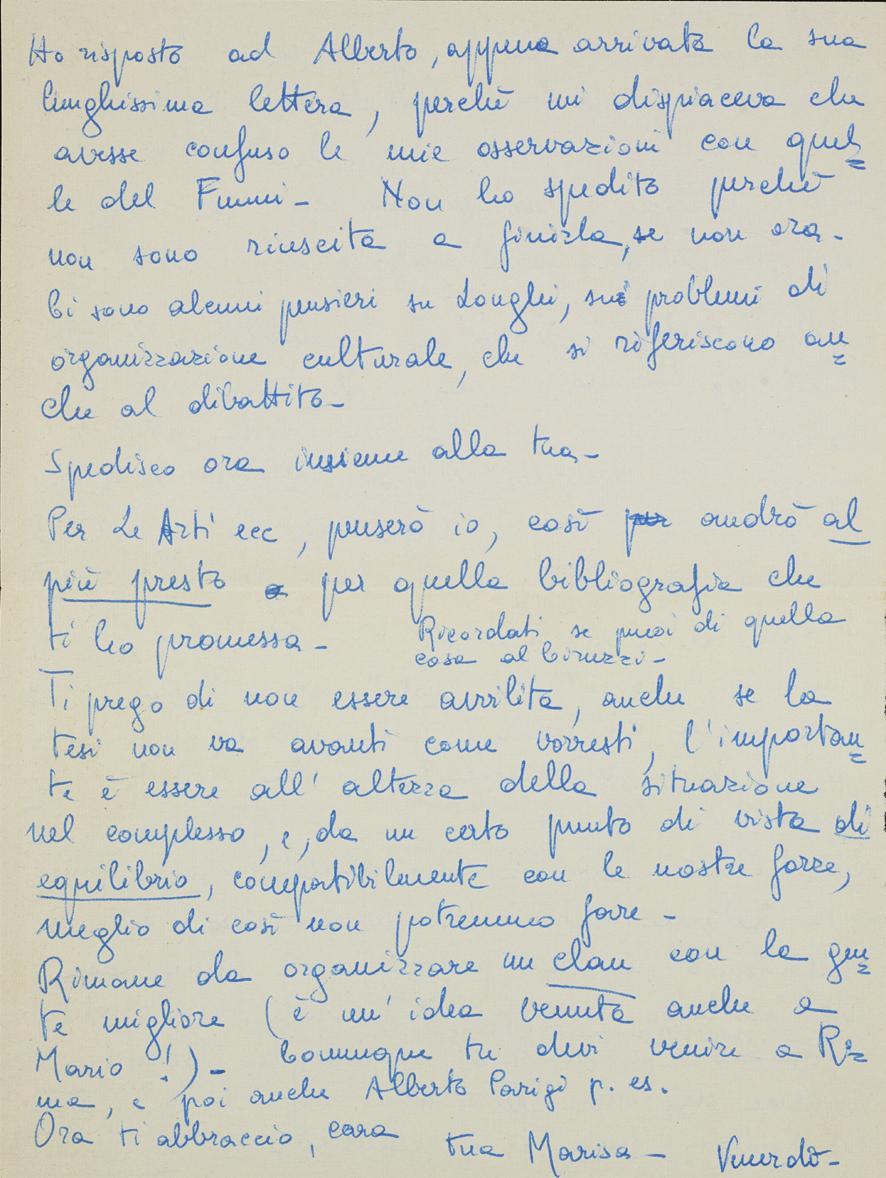 Ho risposto ad Alberto, appena arrivata la sua
lunghissima lettera, perchè mi dispiaceva che
avesse confuso le mie osservazioni con quel=
le del Fumi – Non ho spedito perchè
non sono riuscita a finirla, se non ora –
Ci sono alcuni pensieri su Longhi, sui problemi di
organizzazione culturale, che si riferiscono an=
che al dibattito –
Spedisco ora insieme alla tua –
Per Le Arti ecc, penserò io, così andrò al
più presto per quella bibliografia che
ti ho promessa –
Ricordati se puoi di quella
cosa al –
Ti prego di non essere avvilita, anche se la
tesi non va avanti come vorresti, l'importan=
te è essere all'altezza della situazione
nel complesso, e, da un certo punto di vista di
equilibrio, compatibilmente con le nostre forze,
meglio di così non potremmo fare –
Rimane da organizzare un clan con la gen=
te migliore (è un'idea venuta anche a
Mario!) – Comunque tu devi venire a Ro=
ma, e poi anche Alberto Parigi p. es.
Ora ti abbraccio, cara
tua Marisa – Venerdì –